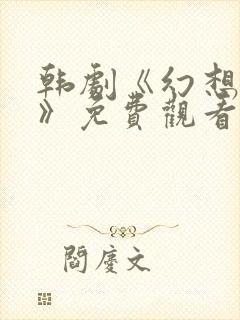 韩劇《幻想
》免費觀看
閻慶文